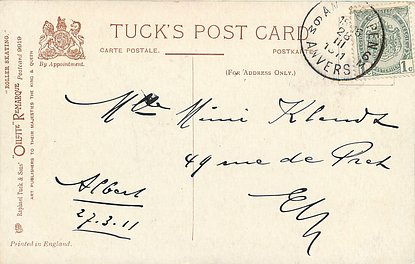 TUCK'S POST CARD
CARTE POSTALE.
POSTKARTE
(FOR ADDRESS ONLY.)
By Appointment.
"ROLLER SKATING."
"OILETTE" REMARQUE Postcard 9919
ART PUBLISHERS TO THEIR MAJESTIES THE KING & QUEEN
Raphael Tuck & Sons'
Printed in England.
ANVERS
1911
1c
Mlle Mimi
49 rue de
E/V
Albert
27.3.11